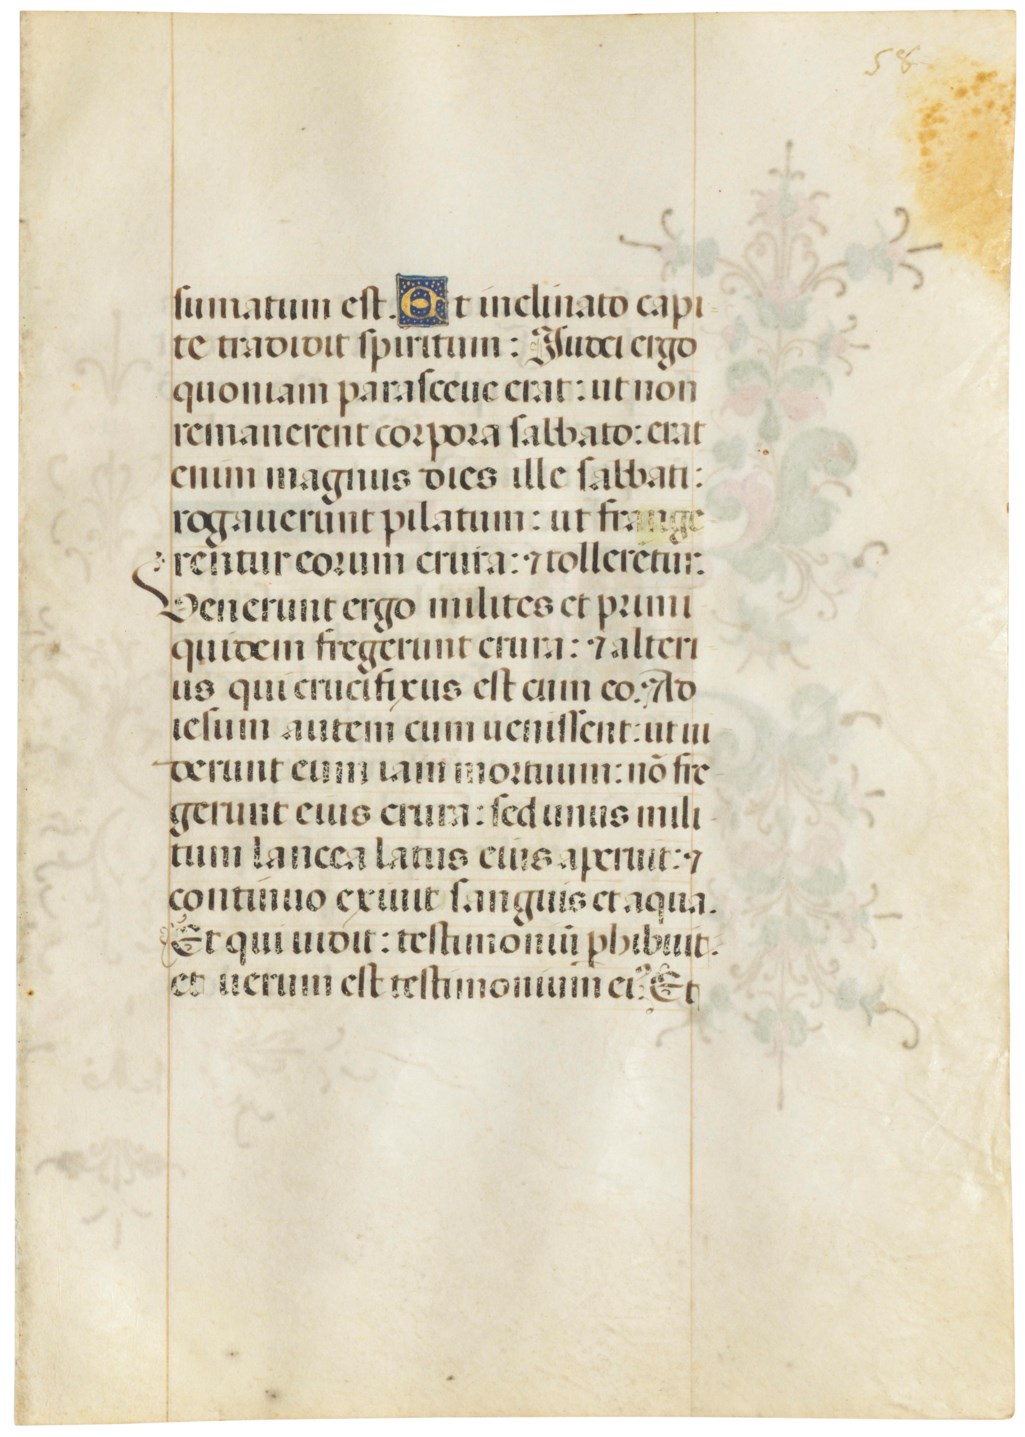 58
sumatum est. Et inclinato capi
te tradidit spiritum: Iudei ergo
quoniam parasceue erat: ut non
remanerent corpora sabbato: erat
enim magnus dies ille sabbati:
rogauerunt pilatum: ut frange
rentur eorum crura: ⁊ tollerentur:
Venerunt ergo milites et primi
quidem fregerunt crura: ⁊ alteri
us qui crucifixus est cum eo. Ad
iesum autem cum uenissent: ut ui
derunt eum iam mortuum: nō fre
gerunt eius crura: sed unus mili
tum lancea latus eius aperuit: ⁊
continuo exiuit sanguis et aqua.
Et qui uidit: testimoniū phibuit:
et uerum est testimonium eiꝰ. Et